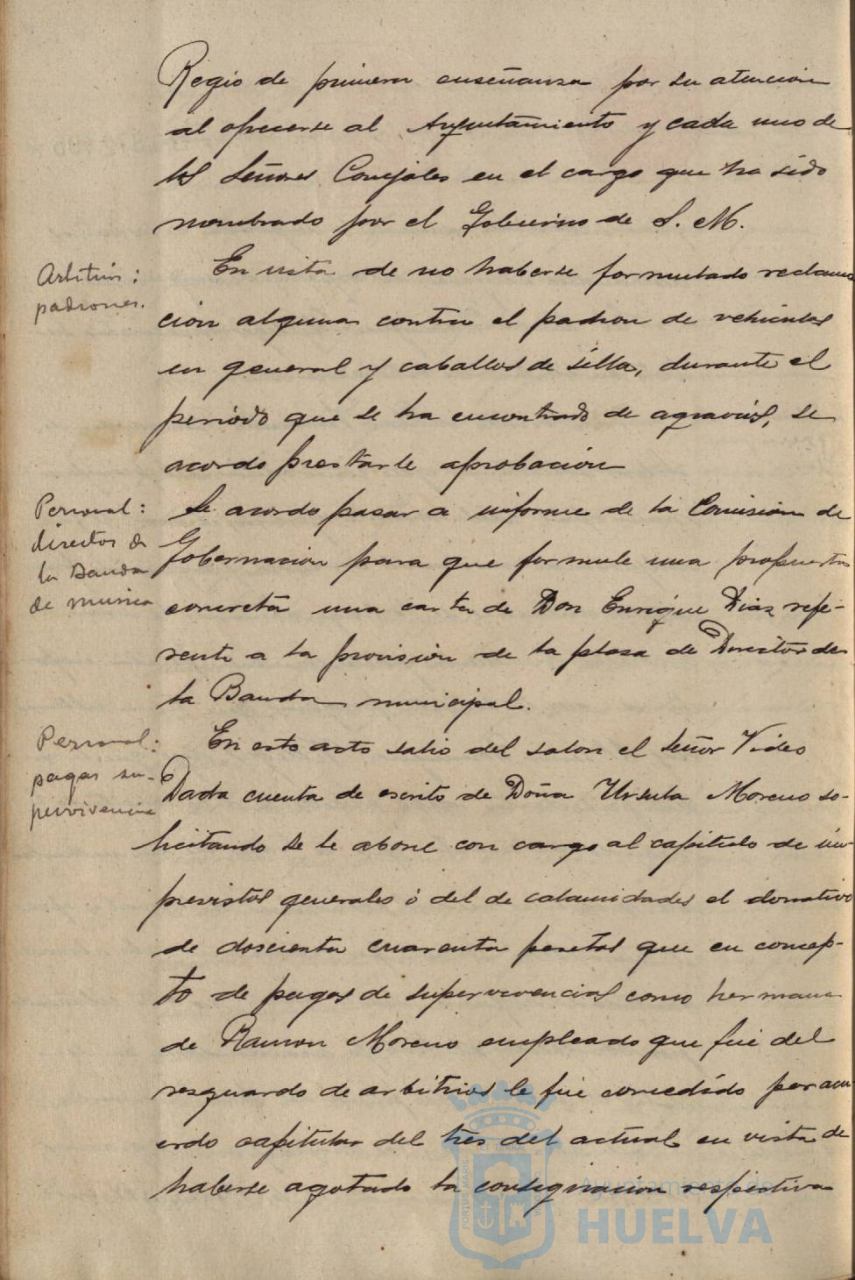 Regio de primera enseñanza por su atencion
al ofrecerse al Ayuntamiento y cada uno de
los Señores Concejales en el cargo que ha sido
nombrado por el Gobierno de S. M.
Arbitrios:
padrones.
En vista de no haberse formulado reclama
ción alguna contra el padron de vehiculos
en general y caballos de silla, durante el
periodo que se ha encontrado de agravios, se
acordo prestarle aprobación
Personal:
director de
la Banda
de musica
Se acordo pasar a informe de la Comision de
Gobernacion para que formule una propuesta
concreta una carta de Don Enrique Diaz refe-
rente a la provision de la plaza de Director de
la Banda municipal.
Personal:
pagas su-
pervivencia
En este acto salio del salon el Señor Video
Dada cuenta de escrito de Doña Ursula Moreno so-
licitando se le abone con cargo al capitulo de im-
previstos generales ó del de calamidades el donativo
de doscienta cuarenta pesetas que en concep-
to de pagas de supervivencias como hermana
de Ramon Moreno empleado que fué del
resguardo de arbitrios le fue concedido por acu
erdo capitular del tres del actual en vista de
haberse agotado la consignacion respectiva
Ayuntamiento de
HUELVA